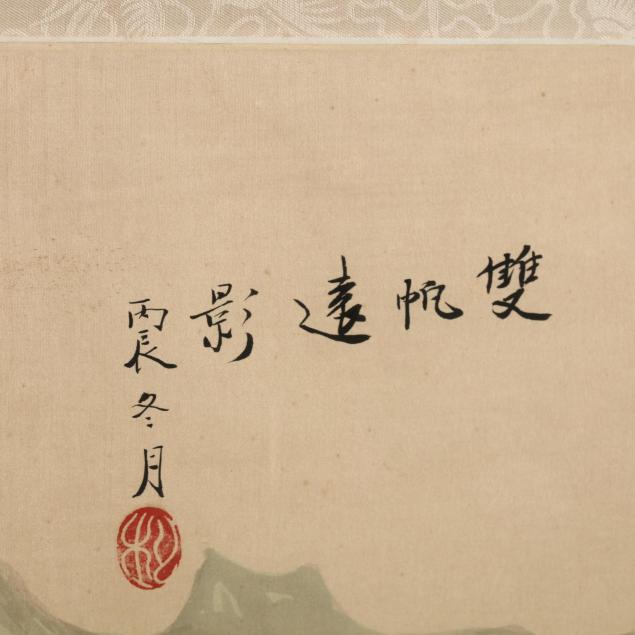 雙帆遠影
丙辰冬月